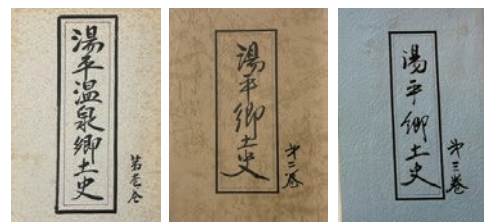 湯平温泉郷土史
第壱巻
湯平郷土史
第二巻
湯平郷土史
第三巻